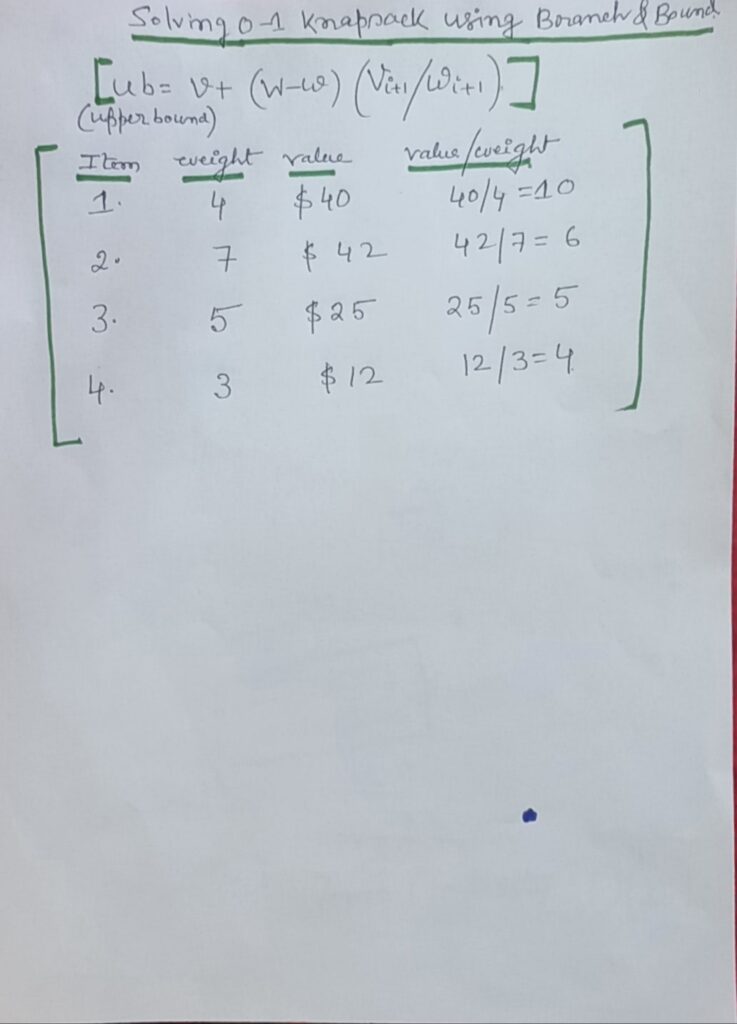 Solving 0-1 Knapsack using Branch & Bound
[ub = v + (W-w) (Vi+1/Wi+1)]
(upper bound)
Item weight value value/weight
1. 4 $40 40/4 = 10
2. 7 $ 42 42/7 = 6
3. 5 $25 25/5 = 5
4. 3 $12 12/3 = 4